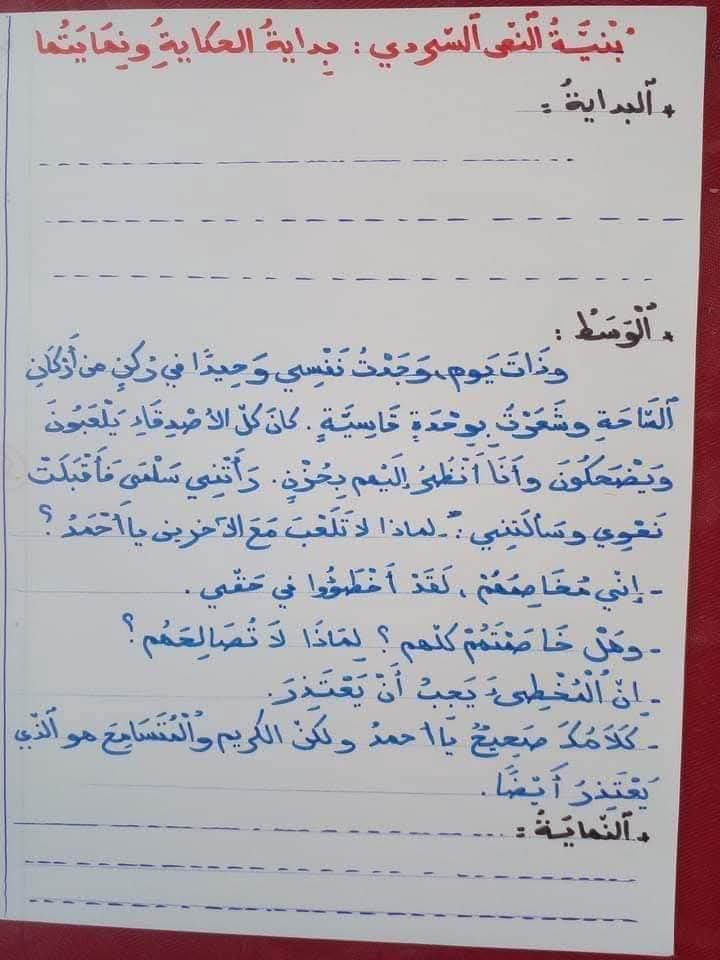 بُنْيَةُ ٱلنَّص ٱلسَّردي : بِدايةُ الحكايةِ ونِهايَتُها
* ٱلبدايةُ :
* ٱلْوَسَطُ :
وذَاتَ يَوم، وَجَدْتُ نَفْسِي وَحِيدًا في رُكْنٍ من أَرْكَانِ
ٱلسَّاحَةِ وشَعَرْتُ بِوِحْدَةٍ قَاسِيَّةٍ. كانَ كلّ الأصْدِقَاءِ يَلْعَبُونَ
وَيَضْحَكُونَ وأَنَا أَنْظُرُ إلَيْهم بِحُزْنٍ. رَأَتْنِي سَلْمَى فَأَقْبَلَتْ
نَحْوِي وسَألَتِنِي :"ـ لماذا لا تَلْعَبَ مَعَ الآخرين يا أحْمَدُ ؟
- إنّني مُخَاصِمُهُمْ ، لَقَدْ أَخْطَؤُوا في حَقّي .
- وهَلْ خَاصَمْتَهُمْ كلّهم ؟ لِمَاذَا لَا تُصَالِحَهُم ؟
- إِنّ ٱلْمُخْطِىءَ يَجِبُ أَنْ يَعْتَذِرَ.
- كَلَامُكَ صَحِيحٌ يَا أحمدُ ولكنّ الكريم وٱلْمُتَسَامِحَ هو ٱلذّي
يَعْتَذِرُ أَيْضًا.
* ٱلنّهايَةُ :